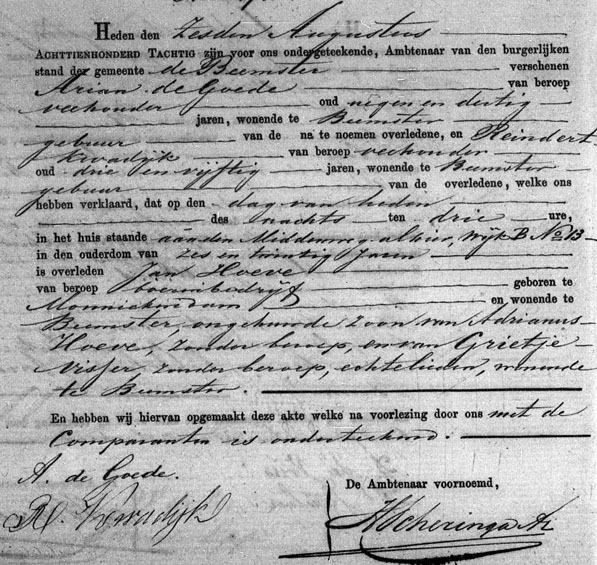 Heden den zesden Augustus
ACHTTIENHONDERD TACHTIG zijn voor ons ondergeteekende, Ambtenaar van den burgerlijken
stand der gemeente de Beemster verschenen
Arian de Goede van beroep
veehouder oud negen en dertig
jaren, wonende te Beemster
gebuur van de na te noemen overledene, en Reindert
Kwadijk van beroep veehouder
oud drie en vijftig jaren, wonende te Beemster
gebuur van de overledene, welke ons
hebben verklaard, dat op den dag van heden
des nachts ten drie ure,
in het huis staande aan den Middenweg alhier, wijk B No 13
in den ouderdom van zes en twintig jaren
is overleden Jan Hoeve
van beroep boerenbedrijf geboren te
Monnickendam en wonende te
Beemster, ongehuwde zoon van Adrianus
Hoeve, zonder beroep, en van Grietje
Visser, zonder beroep, echtelieden, wonende
te Beemster.
En hebben wij hiervan opgemaakt deze akte welke na voorlezing door ons met de
Comparanten is onderteekend.
A. de Goede.
De Ambtenaar voornoemd,
R. Kwadijk